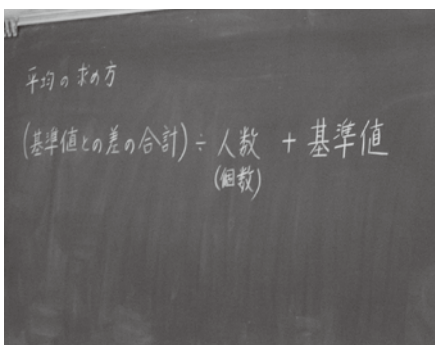 平均の求め方
(基準値との差の合計)÷人数+基準値
(個数)